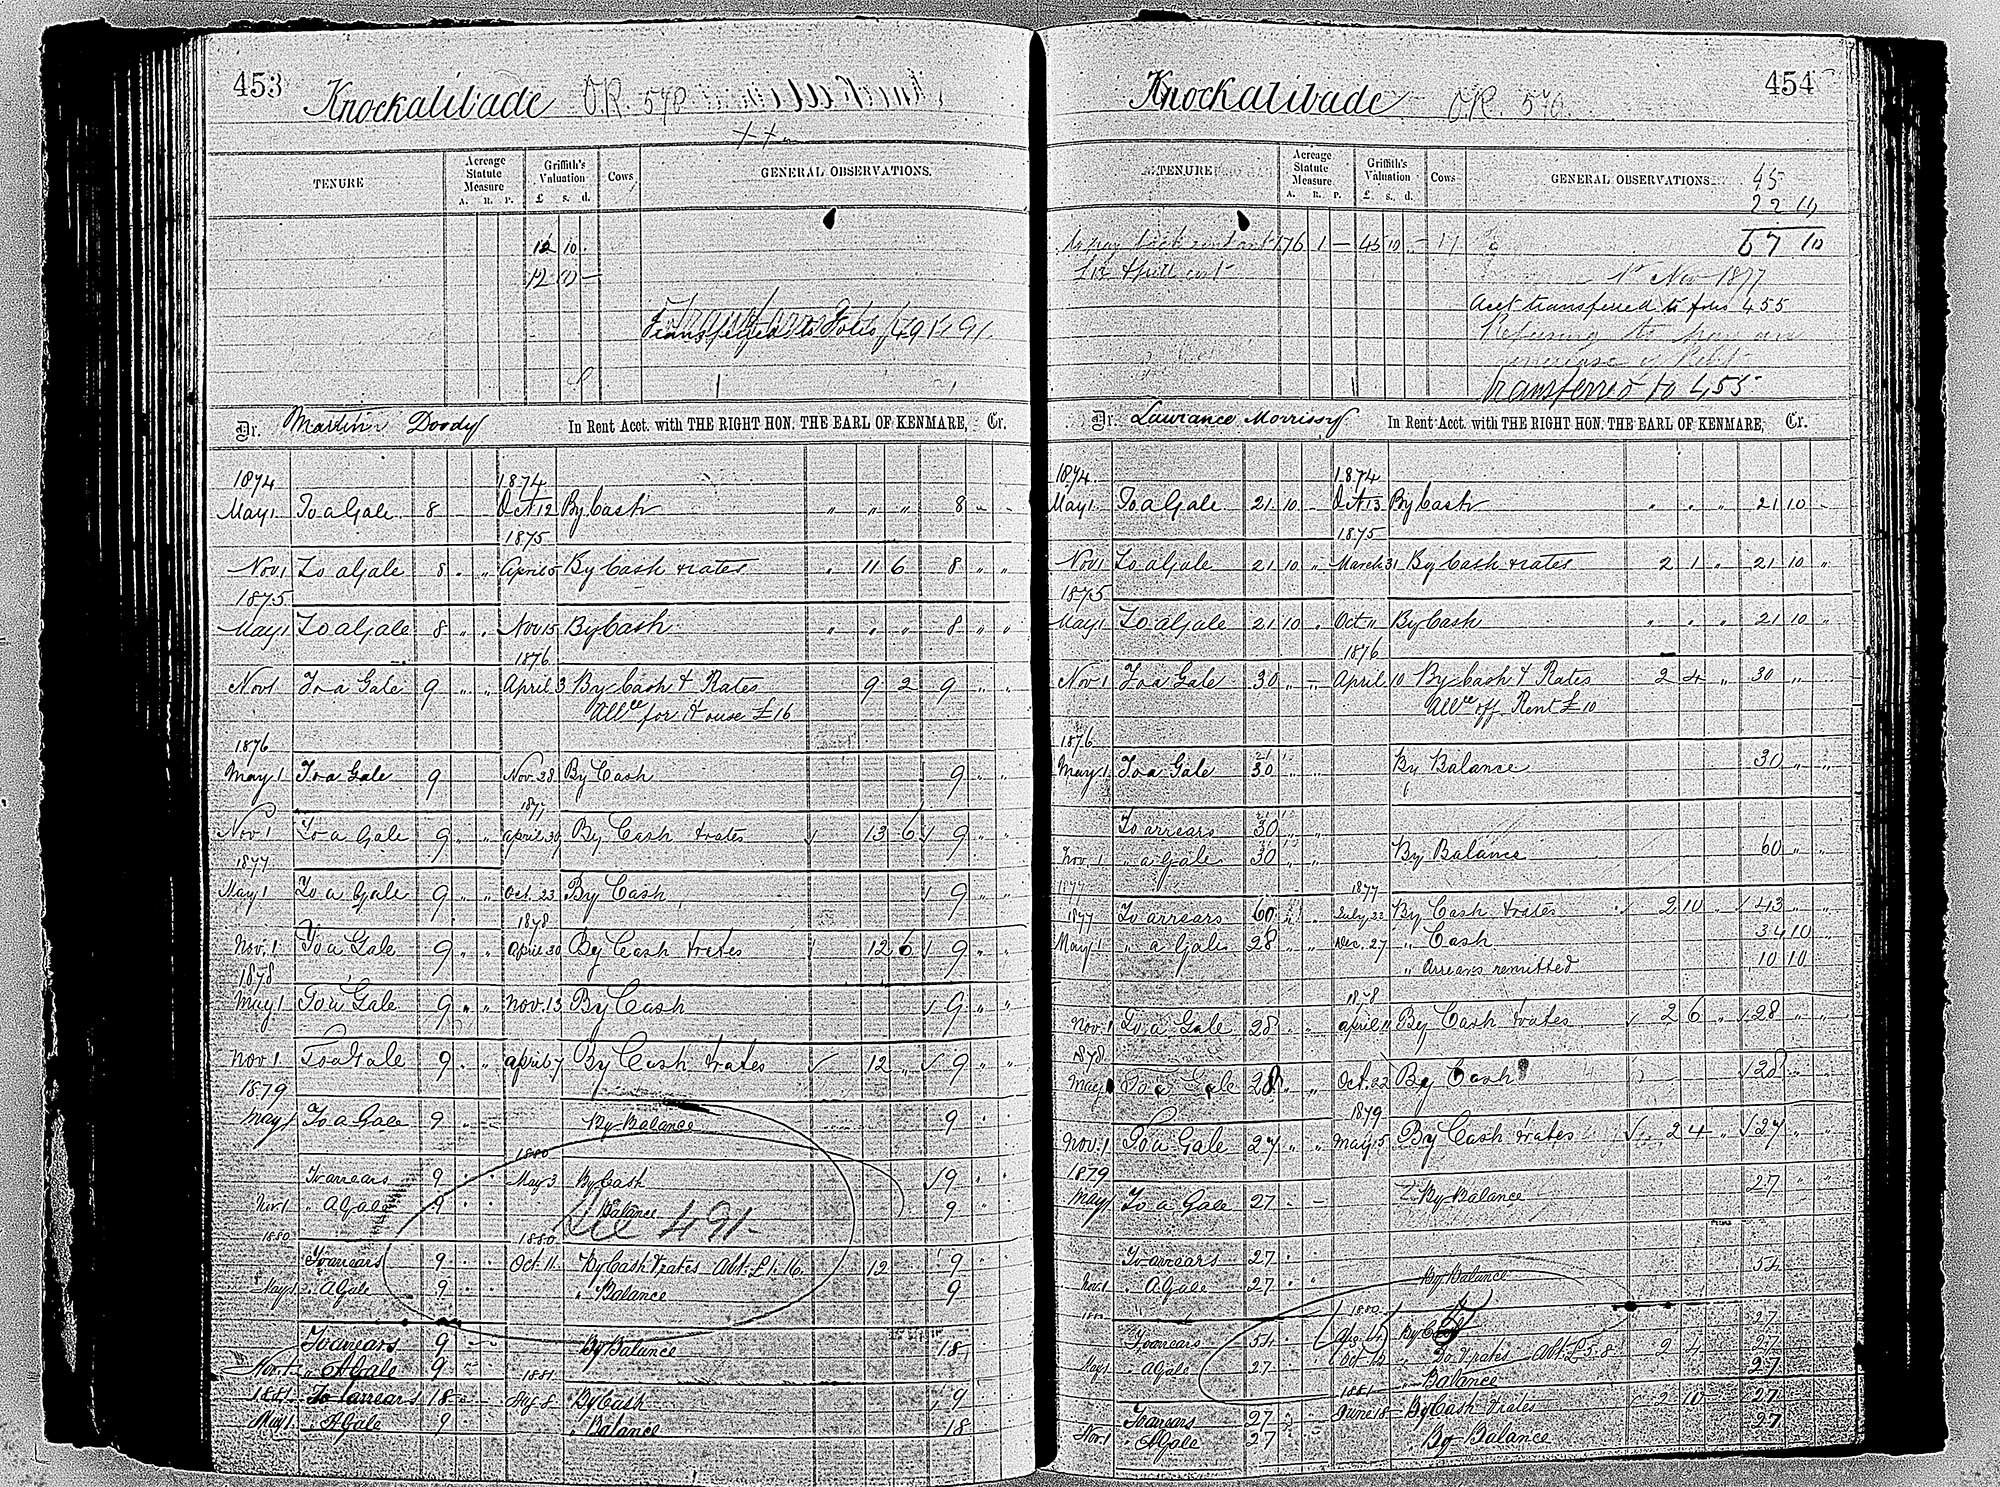 453
Knockalibade OR 570
TENURE
Acreage Statute Measure
A. R. P.
Griffith's Valuation
£ s. d.
Cows
GENERAL OBSERVATIONS.
12 10
12 10 –
Transferred to Folio 491
Dr. Martin Doody In Rent Acct. with THE RIGHT HON. THE EARL OF KENMARE, Cr.
1874 1874
May 1 To a Gale 8 Oct 12 By Cash " " " 8 " "
1875
Nov 1 To a Gale 8 " " April 5 By Cash & rates " 11 6 8 " "
1875
May 1 To a Gale 8 " " Nov 15 By Cash " " " 8 " "
1876
Nov 1 To a Gale 9 " " April 3 By Cash & Rates 9 2 9 " "
Allce for House £16
1876
May 1 To a Gale 9 Nov. 28 By Cash 9 " "
1877
Nov. 1 To a Gale 9 " " April 30 By Cash & rates 13 6 9 " "
1877
May 1 To a Gale 9 " " Oct. 23 By Cash 9 " "
1878
Nov. 1 To a Gale 9 " " April 30 By Cash & rates 12 6 9 " "
1878
May 1 To a Gale 9 " " Nov. 13 By Cash 9 " "
Nov 1. To a Gale 9 " " April 7 By Cash & rates 12 " 9 " "
1879
May 1 To a Gale 9 " " By Balance 9 "
1880
To arrears 9 " " May 3 By Cash 9 "
Nov. 1 " A Gale 9 " Balance 9 "
See 491
1880 1880
To arrears 9 " " Oct. 11 By Cash & rates Abt. £1.16. 12 9 "
May 1 " A Gale 9 " " " Balance 9
To arrears 9 By Balance 18
Nov. 1 " A Gale 9 1881
1881 To arrears 18 By Cash 9
May 1. " A Gale 9 " Balance 18
454
Knockalibade O.R. 570.
TENURE
Acreage Statute Measure
A. R. P.
Griffith's Valuation
£. s. d.
Cows
GENERAL OBSERVATIONS
45
22 10
67 10
176 1 – 45 10
1st Nov 1877
Acct transferred to folio 455
Refusing to pay an
increase of Rent
Transferred to 455
Dr. Laurance Morrissy In Rent Acct. with THE RIGHT HON. THE EARL OF KENMARE, Cr.
1874. 1874
May 1. To a Gale 21 10 Oct 13 By Cash " " " 21 10 "
1875
Nov 1 To a Gale 21 10 " March 31 By Cash & rates 2 1 " 21 10 "
1875
May 1 To a Gale 21 10 " Oct 11 By Cash " " " 21 10 "
1876
Nov 1 To a Gale 30 " " April 10 By Cash & Rates 2 4 " 30 " "
Allce off Rent £10
1876
May 1. To a Gale 30 " " By Balance 30 " "
To arrears 30 " "
Nov. 1 " a Gale 30 " " By Balance 60 " "
1877 1877
1877 To arrears 60 " " July 23 By Cash & rates 2 10 " 43 " "
May 1 " a Gale 28 " " Dec. 27 " Cash 34 10 "
" Arrears remitted 10 10
1878
Nov. 1 To a Gale 28 " " April 11 By Cash & rates 2 6 " 28 " "
1878
May To a Gale 28 " " Oct. 22 By Cash 28 " "
1879
Nov. 1 To a Gale 27 " " May 5 By Cash & rates 2 4 " 27 " "
1879
May 1 To a Gale 27 " – By Balance 27 " "
To arrears 27 " "
Nov 1 " A Gale 27 " " By Balance 54
1880
To arrears 54 By Cash 27
May 1 " A Gale 27 Oct. 14 " Do & rates Abt. £5.8 2 4 27
1881 " Balance 27
To arrears 27 June 18 By Cash & rates 2 10 27
Nov. 1 " A Gale 27 " By Balance 27